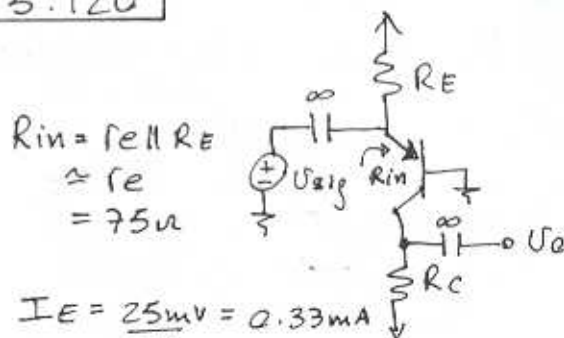 5.120
Rin = re || RE
≈ re
= 75Ω
∞
RE
+
−
Usig
Rin
∞
Uo
RC
IE = 25mV = 0.33mA